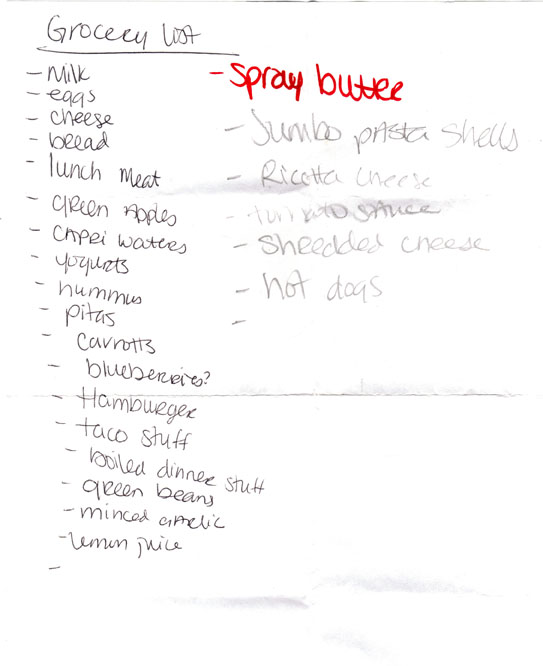 Grocery list
- Milk
- eggs
- cheese
- bread
- lunch meat
- green apples
- capri waters
- yogurts
- hummus
- pitas
- carrotts
- blueberries?
- Hamburger
- taco stuff
- boiled dinner stuff
- green beans
- minced garlic
- lemon juice
-
- spray butter
- Jumbo pasta shells
- Ricotta cheese
- tomato sauce
- shredded cheese
- hot dogs
-